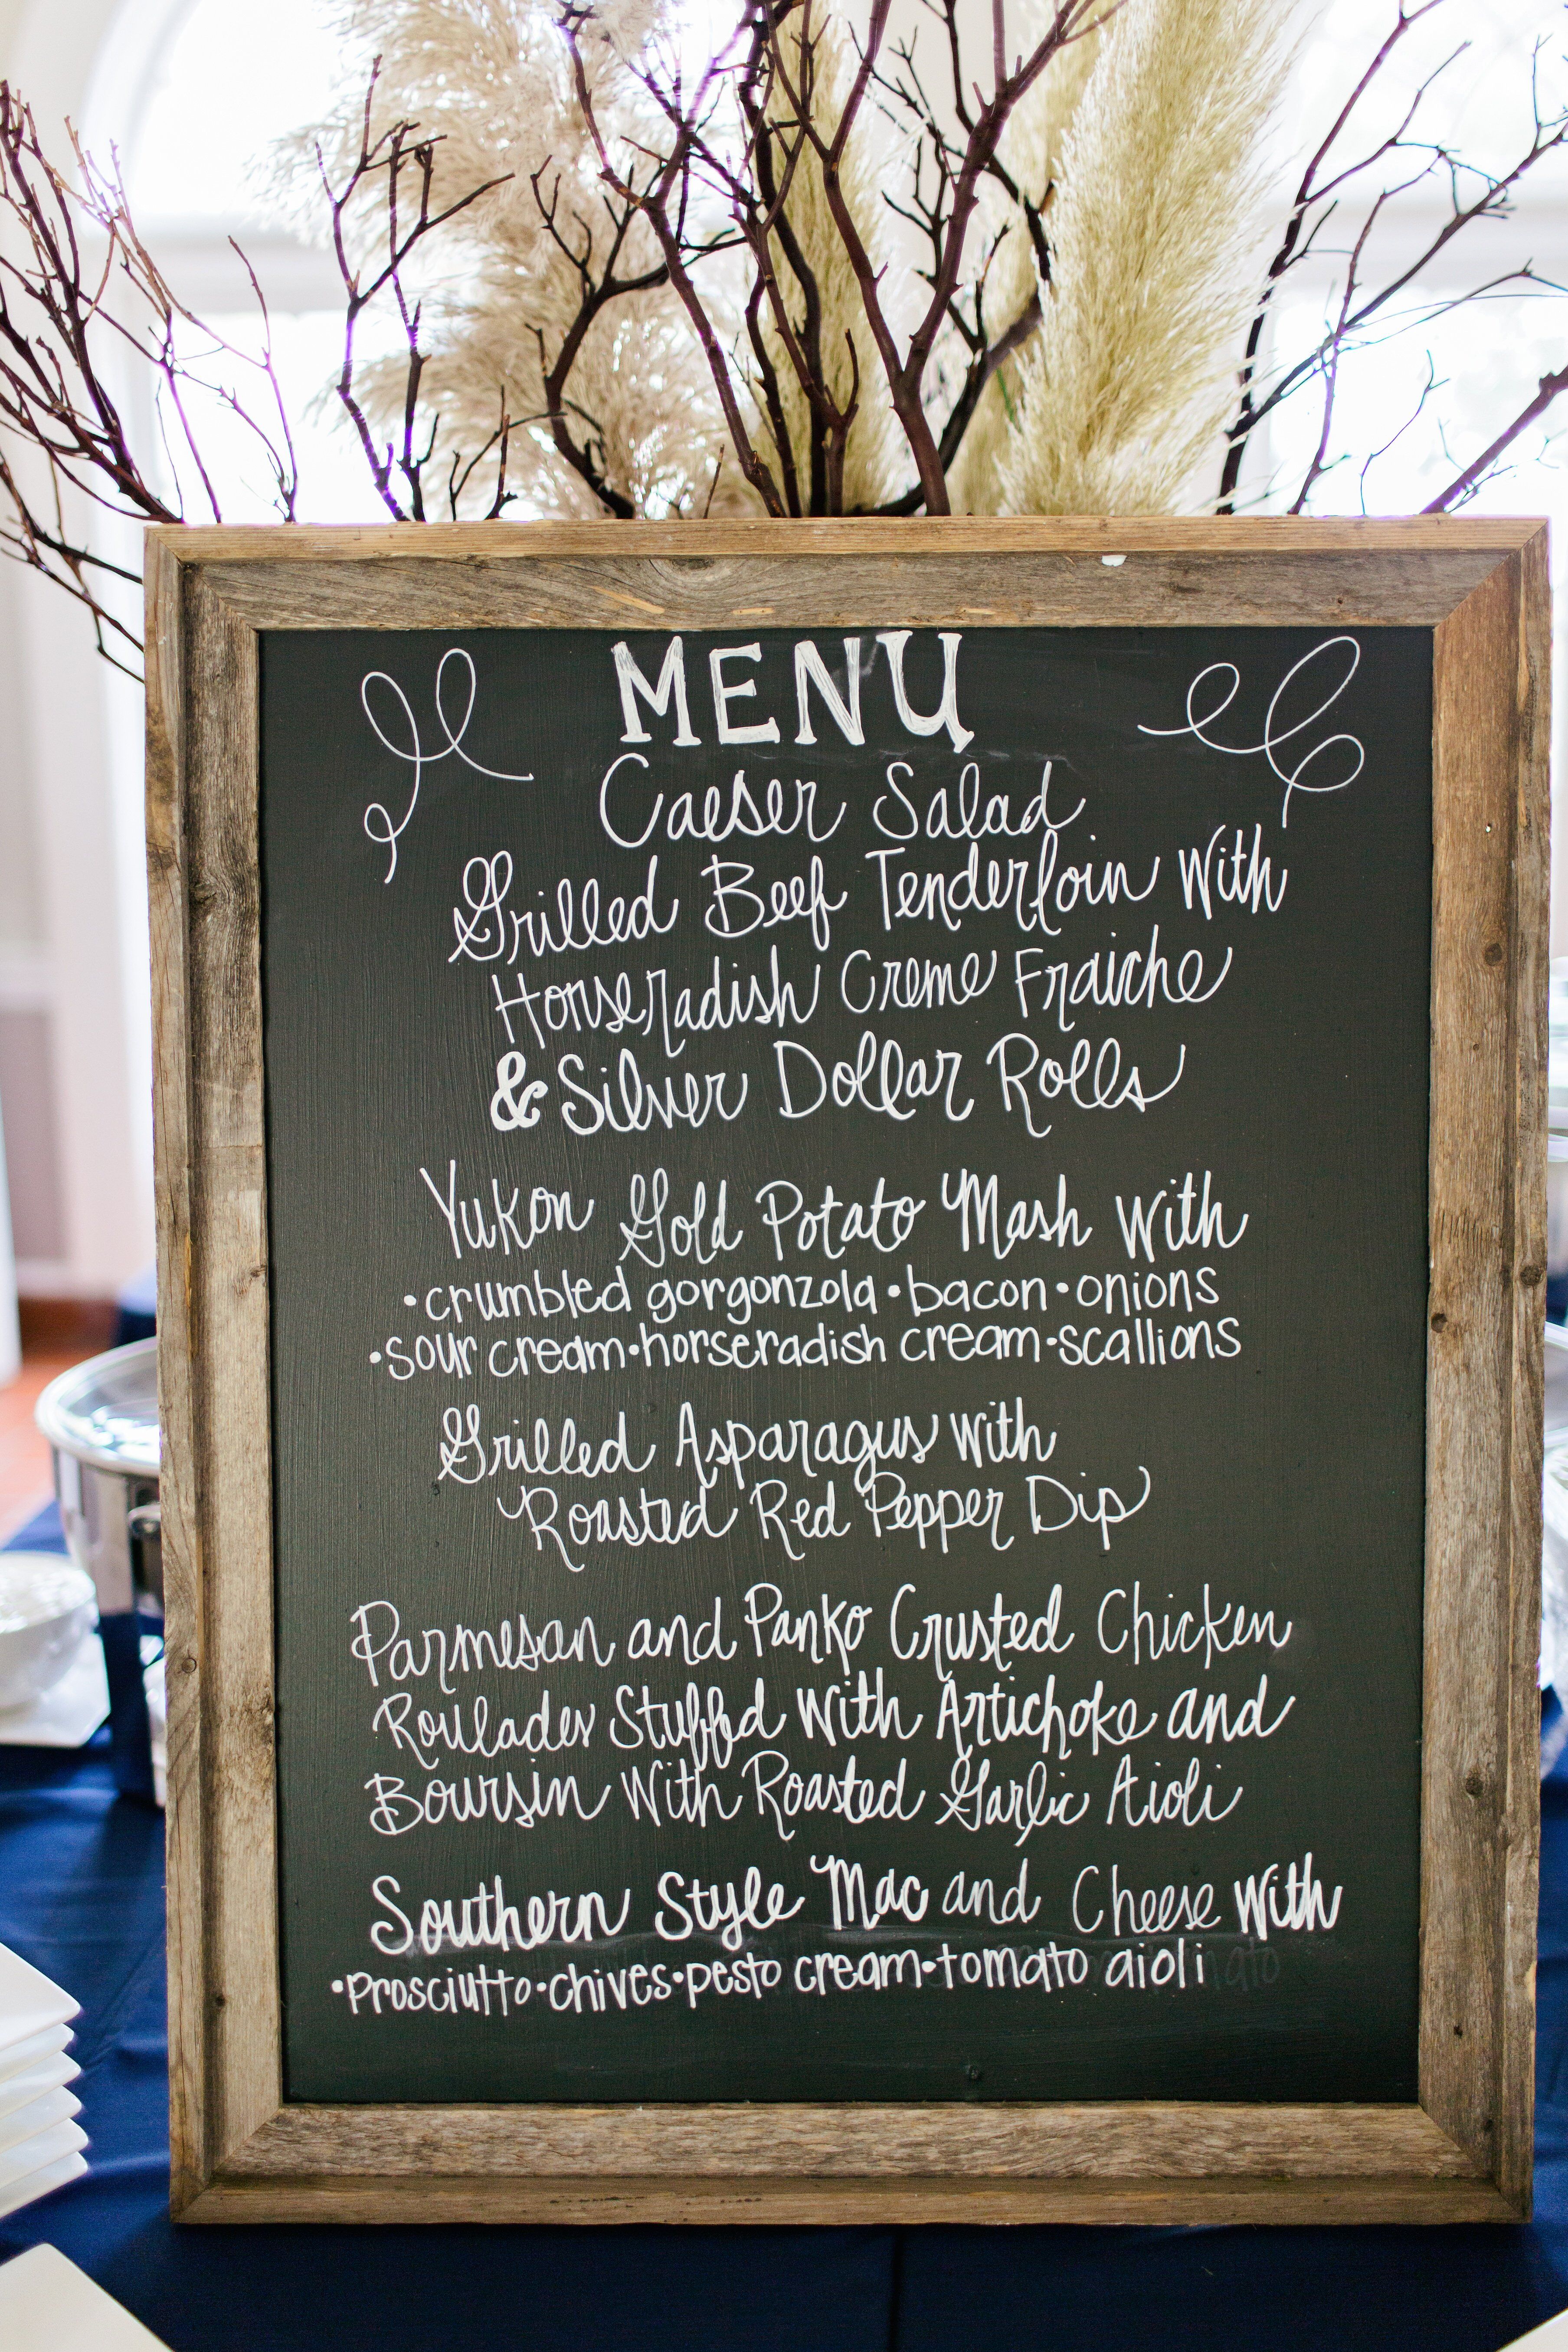 MENU
Caeser Salad
Grilled Beef Tenderloin With
Horseradish Creme Fraiche
& Silver Dollar Rolls
Yukon Gold Potato Mash With
•crumbled gorgonzola•bacon•onions
•sour cream•horseradish cream•scallions
Grilled Asparagus With
Roasted Red Pepper Dip
Parmesan and Panko Crusted Chicken
Roulades Stuffed With Artichoke and
Boursin With Roasted Garlic Aioli
Southern Style Mac and Cheese With
•Prosciutto•chives•pesto cream•tomato aioli